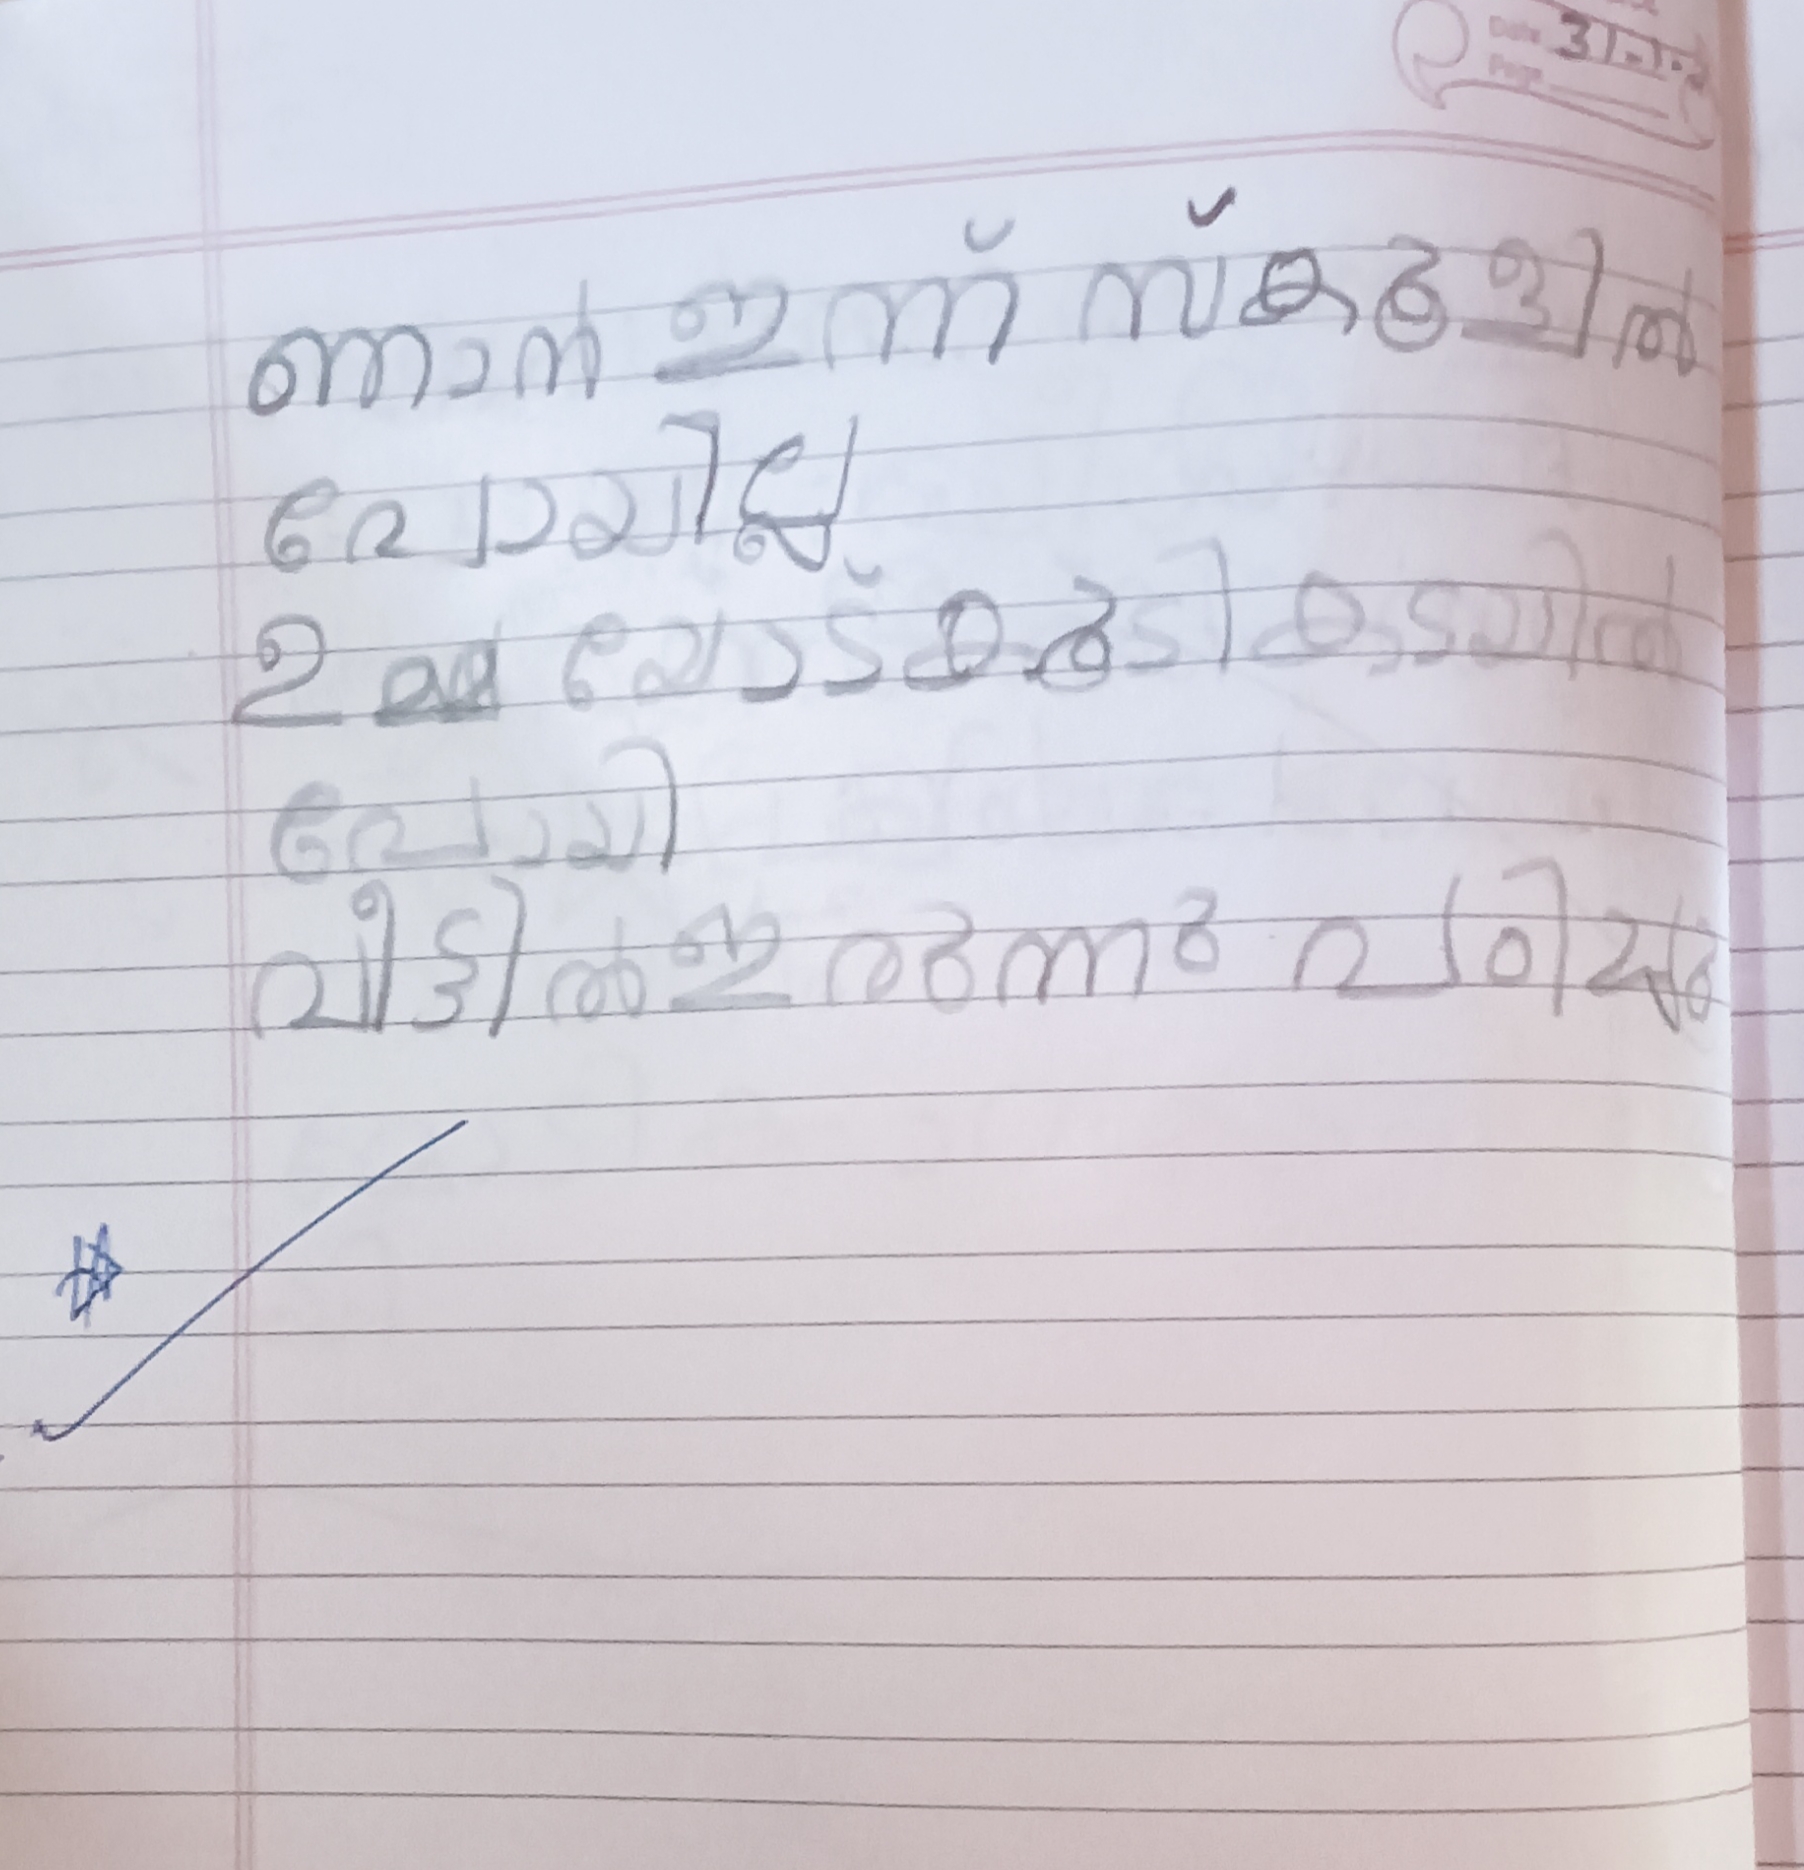 Date 31-1-2
Page
ഞാൻ ഇന്ന് സ്കൂളിൽ
പോയില്ല
ഉമ്മയോട്കൂടി കടയിൽ
പോയി
വീട്ടിൽ ഇരുന്നു പഠിച്ചു